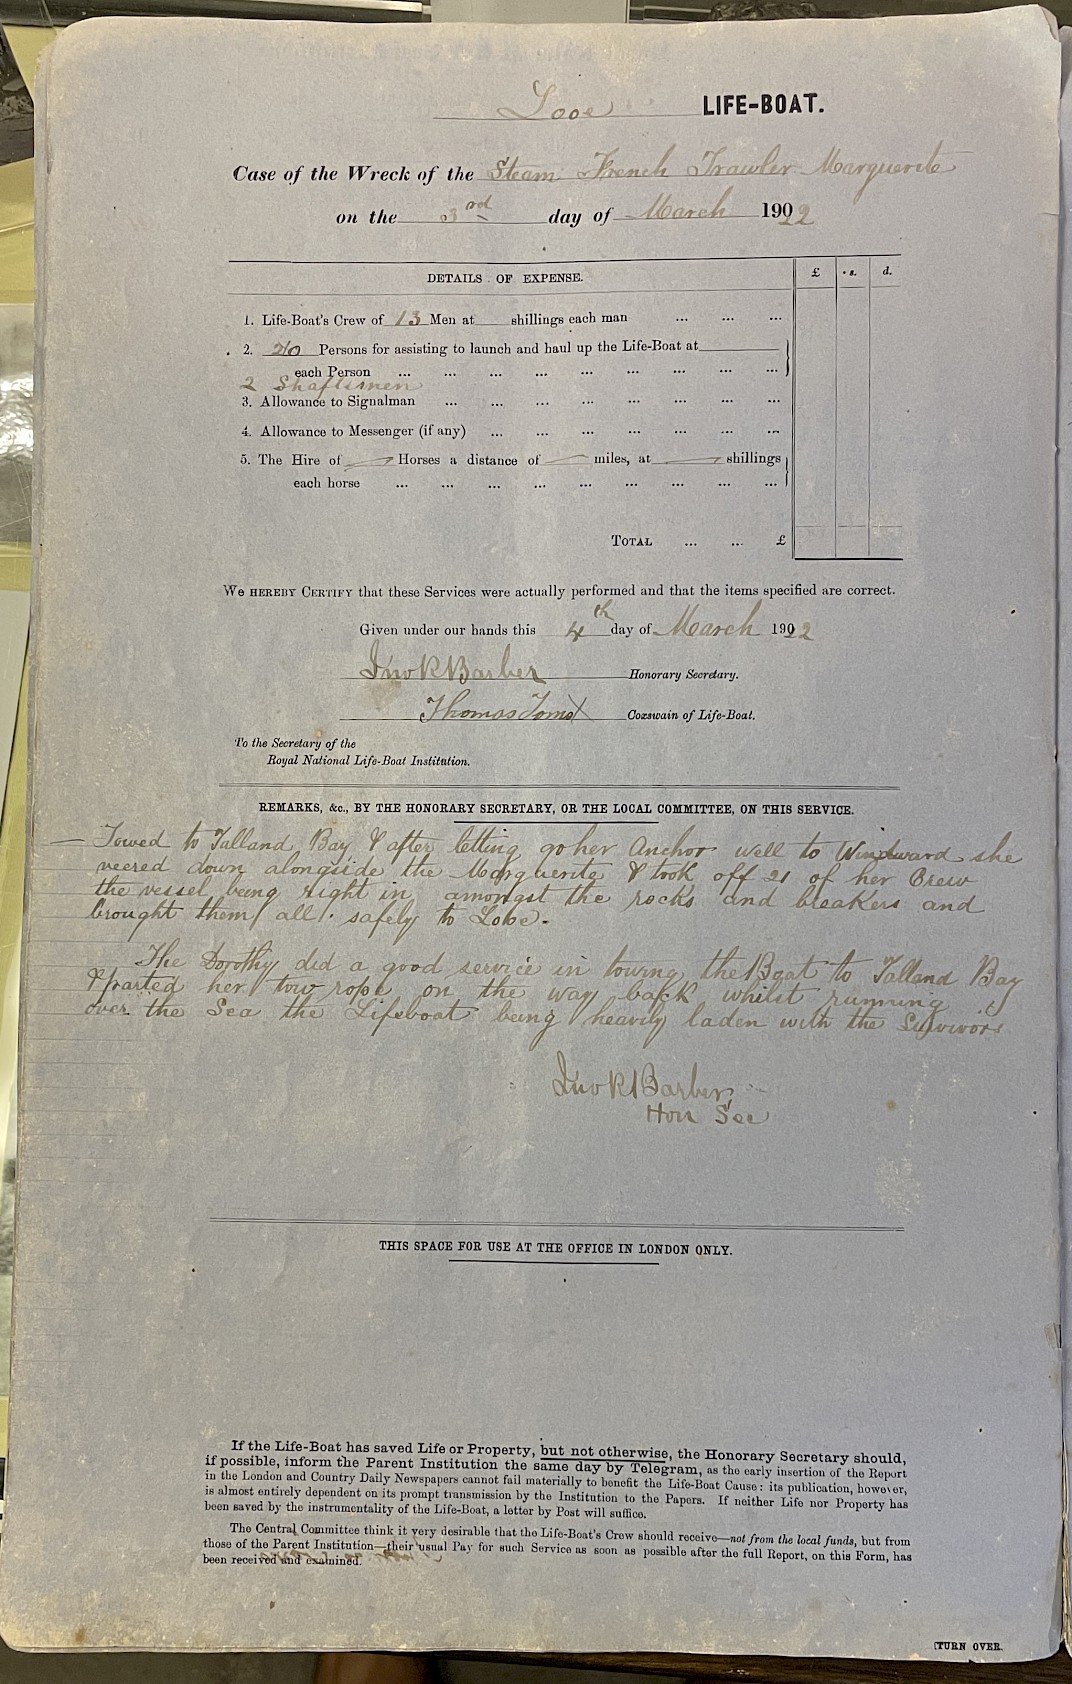 Looe LIFE-BOAT.
Case of the Wreck of the Steam French Trawler Marguerite
on the 3rd day of March 1922
DETAILS OF EXPENSE. £ s. d.
1. Life-Boat's Crew of 13 Men at shillings each man ... ... ...
2. 20 Persons for assisting to launch and haul up the Life-Boat at
each Person ... ... ... ... ... ... ... ... ...
2 Shaftsmen
3. Allowance to Signalman ... ... ... ... ... ... ... ...
4. Allowance to Messenger (if any) ... ... ... ... ... ... ...
5. The Hire of Horses a distance of miles, at shillings
each horse ... ... ... ... ... ... ... ... ...
TOTAL ... ... £
WE HEREBY CERTIFY that these Services were actually performed and that the items specified are correct.
Given under our hands this 4th day of March 1922
Jno R Barber Honorary Secretary.
Thomas Toms Coxswain of Life-Boat.
To the Secretary of the
Royal National Life-Boat Institution.
REMARKS, &c., BY THE HONORARY SECRETARY, OR THE LOCAL COMMITTEE, ON THIS SERVICE.
— Towed to Talland Bay & after letting go her Anchor well to Windward she
veered down alongside the Marguerite & took off 21 of her Crew
the vessel being right in amongst the rocks and breakers and
brought them all safely to Looe.
The Dorothy did a good service in towing the Boat to Talland Bay
& parted her tow rope on the way back whilst running
over the Sea the Lifeboat being heavily laden with the Survivors
Jno R Barber
Hon Sec
THIS SPACE FOR USE AT THE OFFICE IN LONDON ONLY.
If the Life-Boat has saved Life or Property, but not otherwise, the Honorary Secretary should,
if possible, inform the Parent Institution the same day by Telegram, as the early insertion of the Report
in the London and Country Daily Newspapers cannot fail materially to benefit the Life-Boat Cause: its publication, however,
is almost entirely dependent on its prompt transmission by the Institution to the Papers. If neither Life nor Property has
been saved by the instrumentality of the Life-Boat, a letter by Post will suffice.
The Central Committee think it very desirable that the Life-Boat's Crew should receive—not from the local funds, but from
those of the Parent Institution—their usual Pay for such Service as soon as possible after the full Report, on this Form, has
been received and examined.
[TURN OVER.